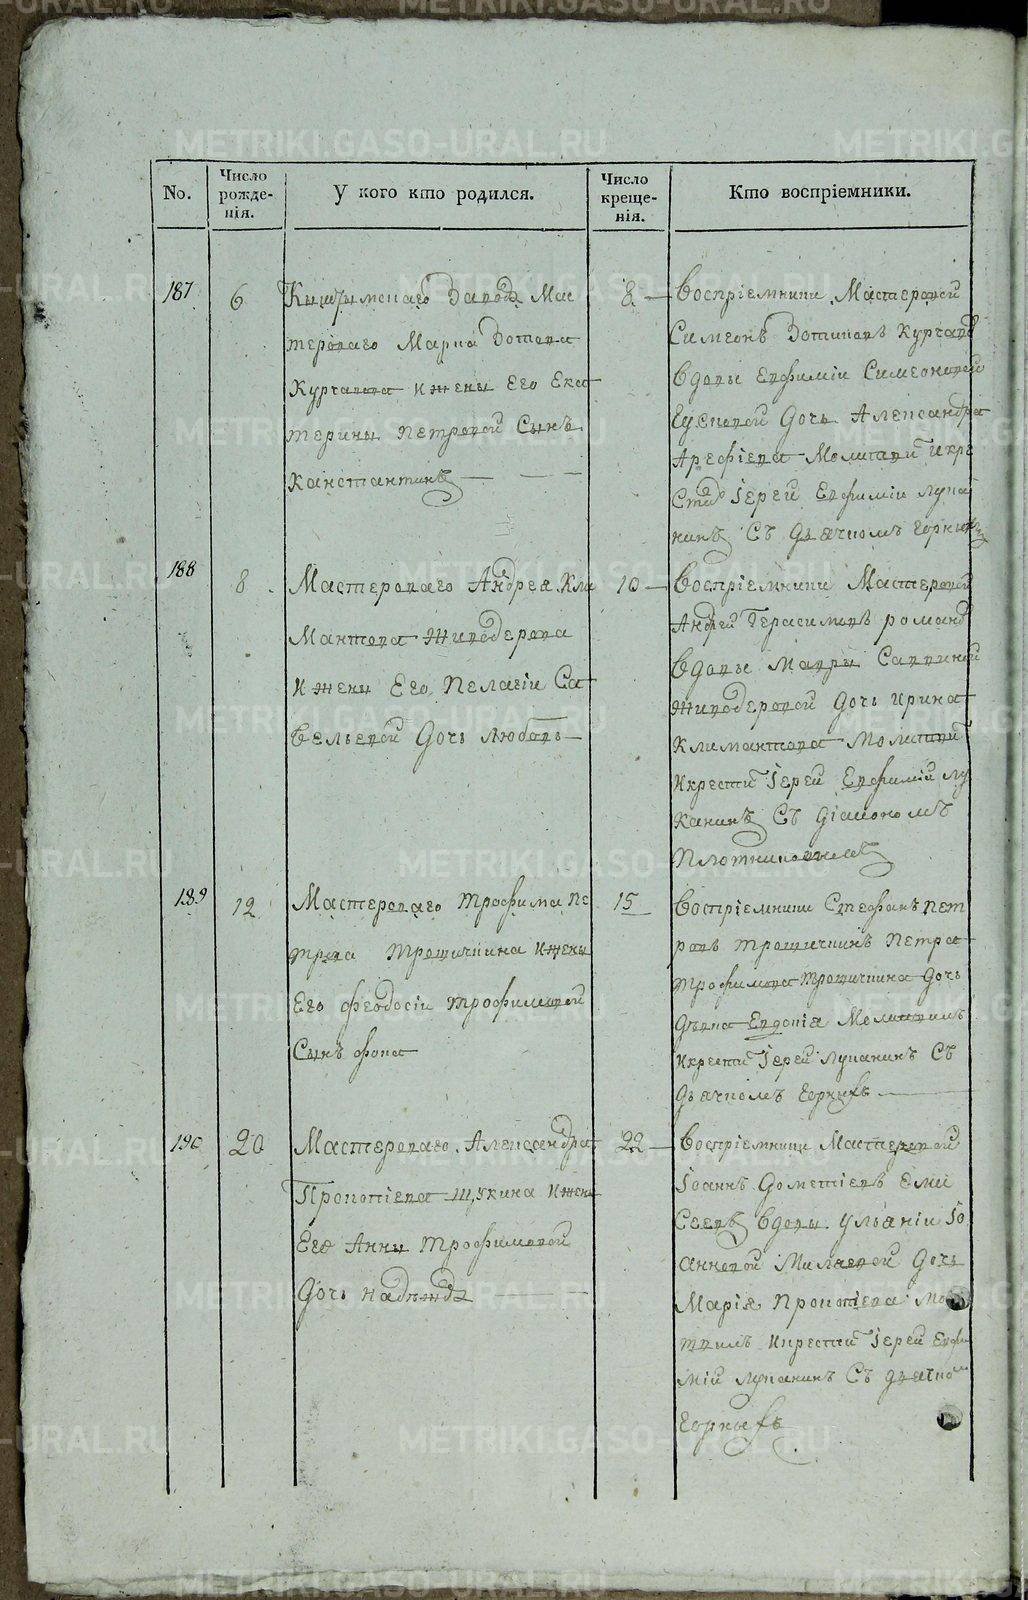 No.
Число рожде- нія.
У кого кто родился.
Число креще- нія.
Кто воспріемники.
187
6
Кыштымскаго Завода Мас
тероваго Марка Зотова
Курчатова Ижены Его Ека
терины Петровой Сынъ
Канстантинъ
8
Воспріемники Мастеровой
Симеонъ Зотиковъ Курчатовъ
Вдовы Евфиміи Симеоновой
Дочь Александра
Арефіева Молитвилъ Икре
стилъ Іерей Евфимій Лука
нинъ Съ дьячкомъ Горныхъ
188
8
Мастероваго Андрея Кли
Мантова Живодерова
Ижены Его Пелагіи Са
Вельевой Дочь Любовь
10
Воспріемники Мастеровой
Андрей Герасимовъ Романо
Вдовы Мавры Саввиной
Живодеровой Дочь Ирина
Климантова Молитвилъ
Икрестилъ Іерей Евфимій Лу
Канинъ Съ діакономъ
Плотниковымъ
189
12
Мастероваго Трофима Пе
трова Трошичкина Ижены
Его Феодосіи Трофимовой
Сынъ Фока
15
Воспріемники Стефанъ Пет
ровъ Трошичкинъ Петра
Трофимова Трошичкина Дочь
Дѣвка Евдокія Молитвилъ
Икрестилъ Іерей Луканинъ Съ
Дьячкомъ Горныхъ
190
20
Мастероваго Александра
Прокопіева Щукина Ижены
Его Анны Трофимовой
Дочь Надѣжда
22
Воспріемники Мастеровой
Іоаннъ Дометіевъ Ели
Сеевъ Вдовы Ульяніи Іо
анновой Милаевой Дочь
Марія Прокопіева Моли
твилъ Икрестилъ Іерей Евфи
мій Луканинъ Съ дьячком
Горныхъ
METRIKI.GASO-URAL.RU